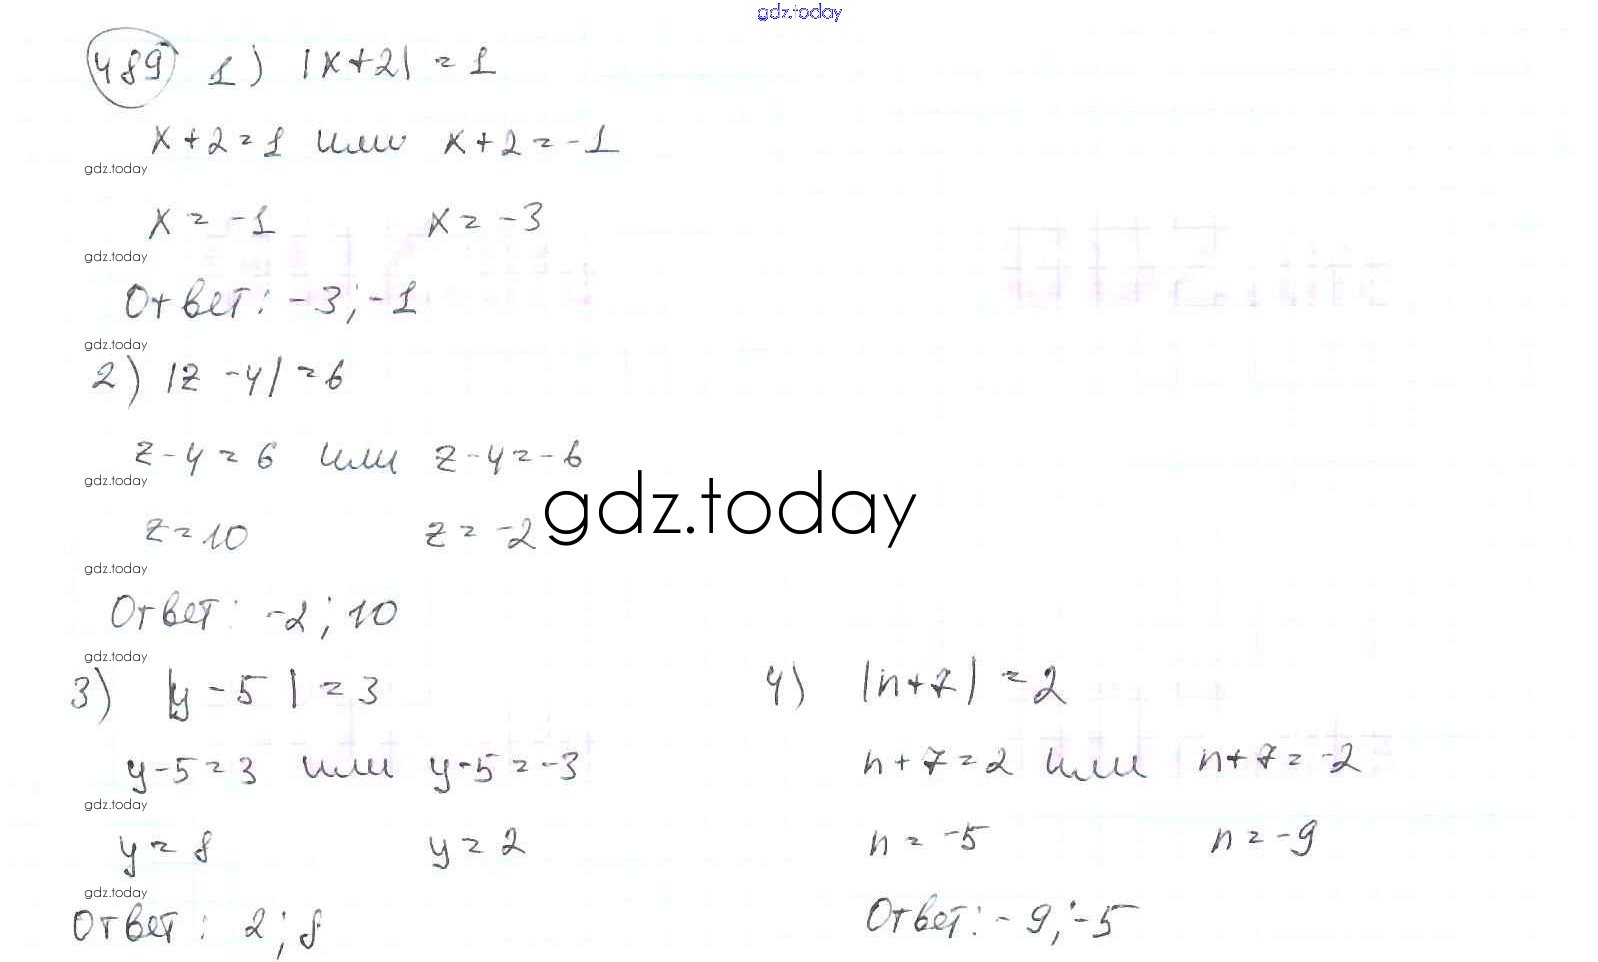 gdz.today
489 1) |x+2| = 1
x+2=1 или x+2=-1
gdz.today
x = -1 x = -3
gdz.today
Ответ: -3; -1
gdz.today
2) |z-4| = 6
z-4 = 6 или z-4=-6
gdz.today
gdz.today
z=10 z = -2
gdz.today
Ответ: -2; 10
gdz.today
3) |y-5| = 3
y-5=3 или y-5=-3
gdz.today
y = 8 y = 2
gdz.today
Ответ: 2; 8
4) |n+7| = 2
n+7=2 или n+7=-2
n = -5 n = -9
Ответ: -9; -5